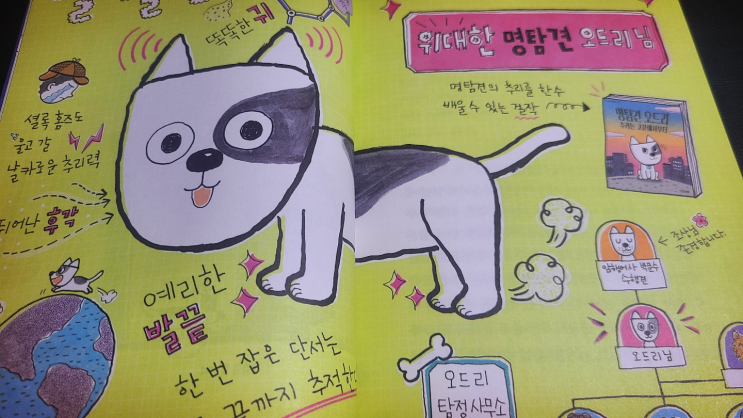 똑똑한 귀
위대한 명탐견 오드리 님
명탐견의 추리를 한 수
배울 수 있는 걸작
명탐견 오드리
추리는 코끝에서부터
셜록 홈즈도
울고 갈
날카로운 추리력
뛰어난 후각
조상님
존경합니다.
암행어사 박문수
수행견
오드리 님
예리한
발끝
한 번 잡은 단서는
끝까지 추적한
오드리
탐정 사무소